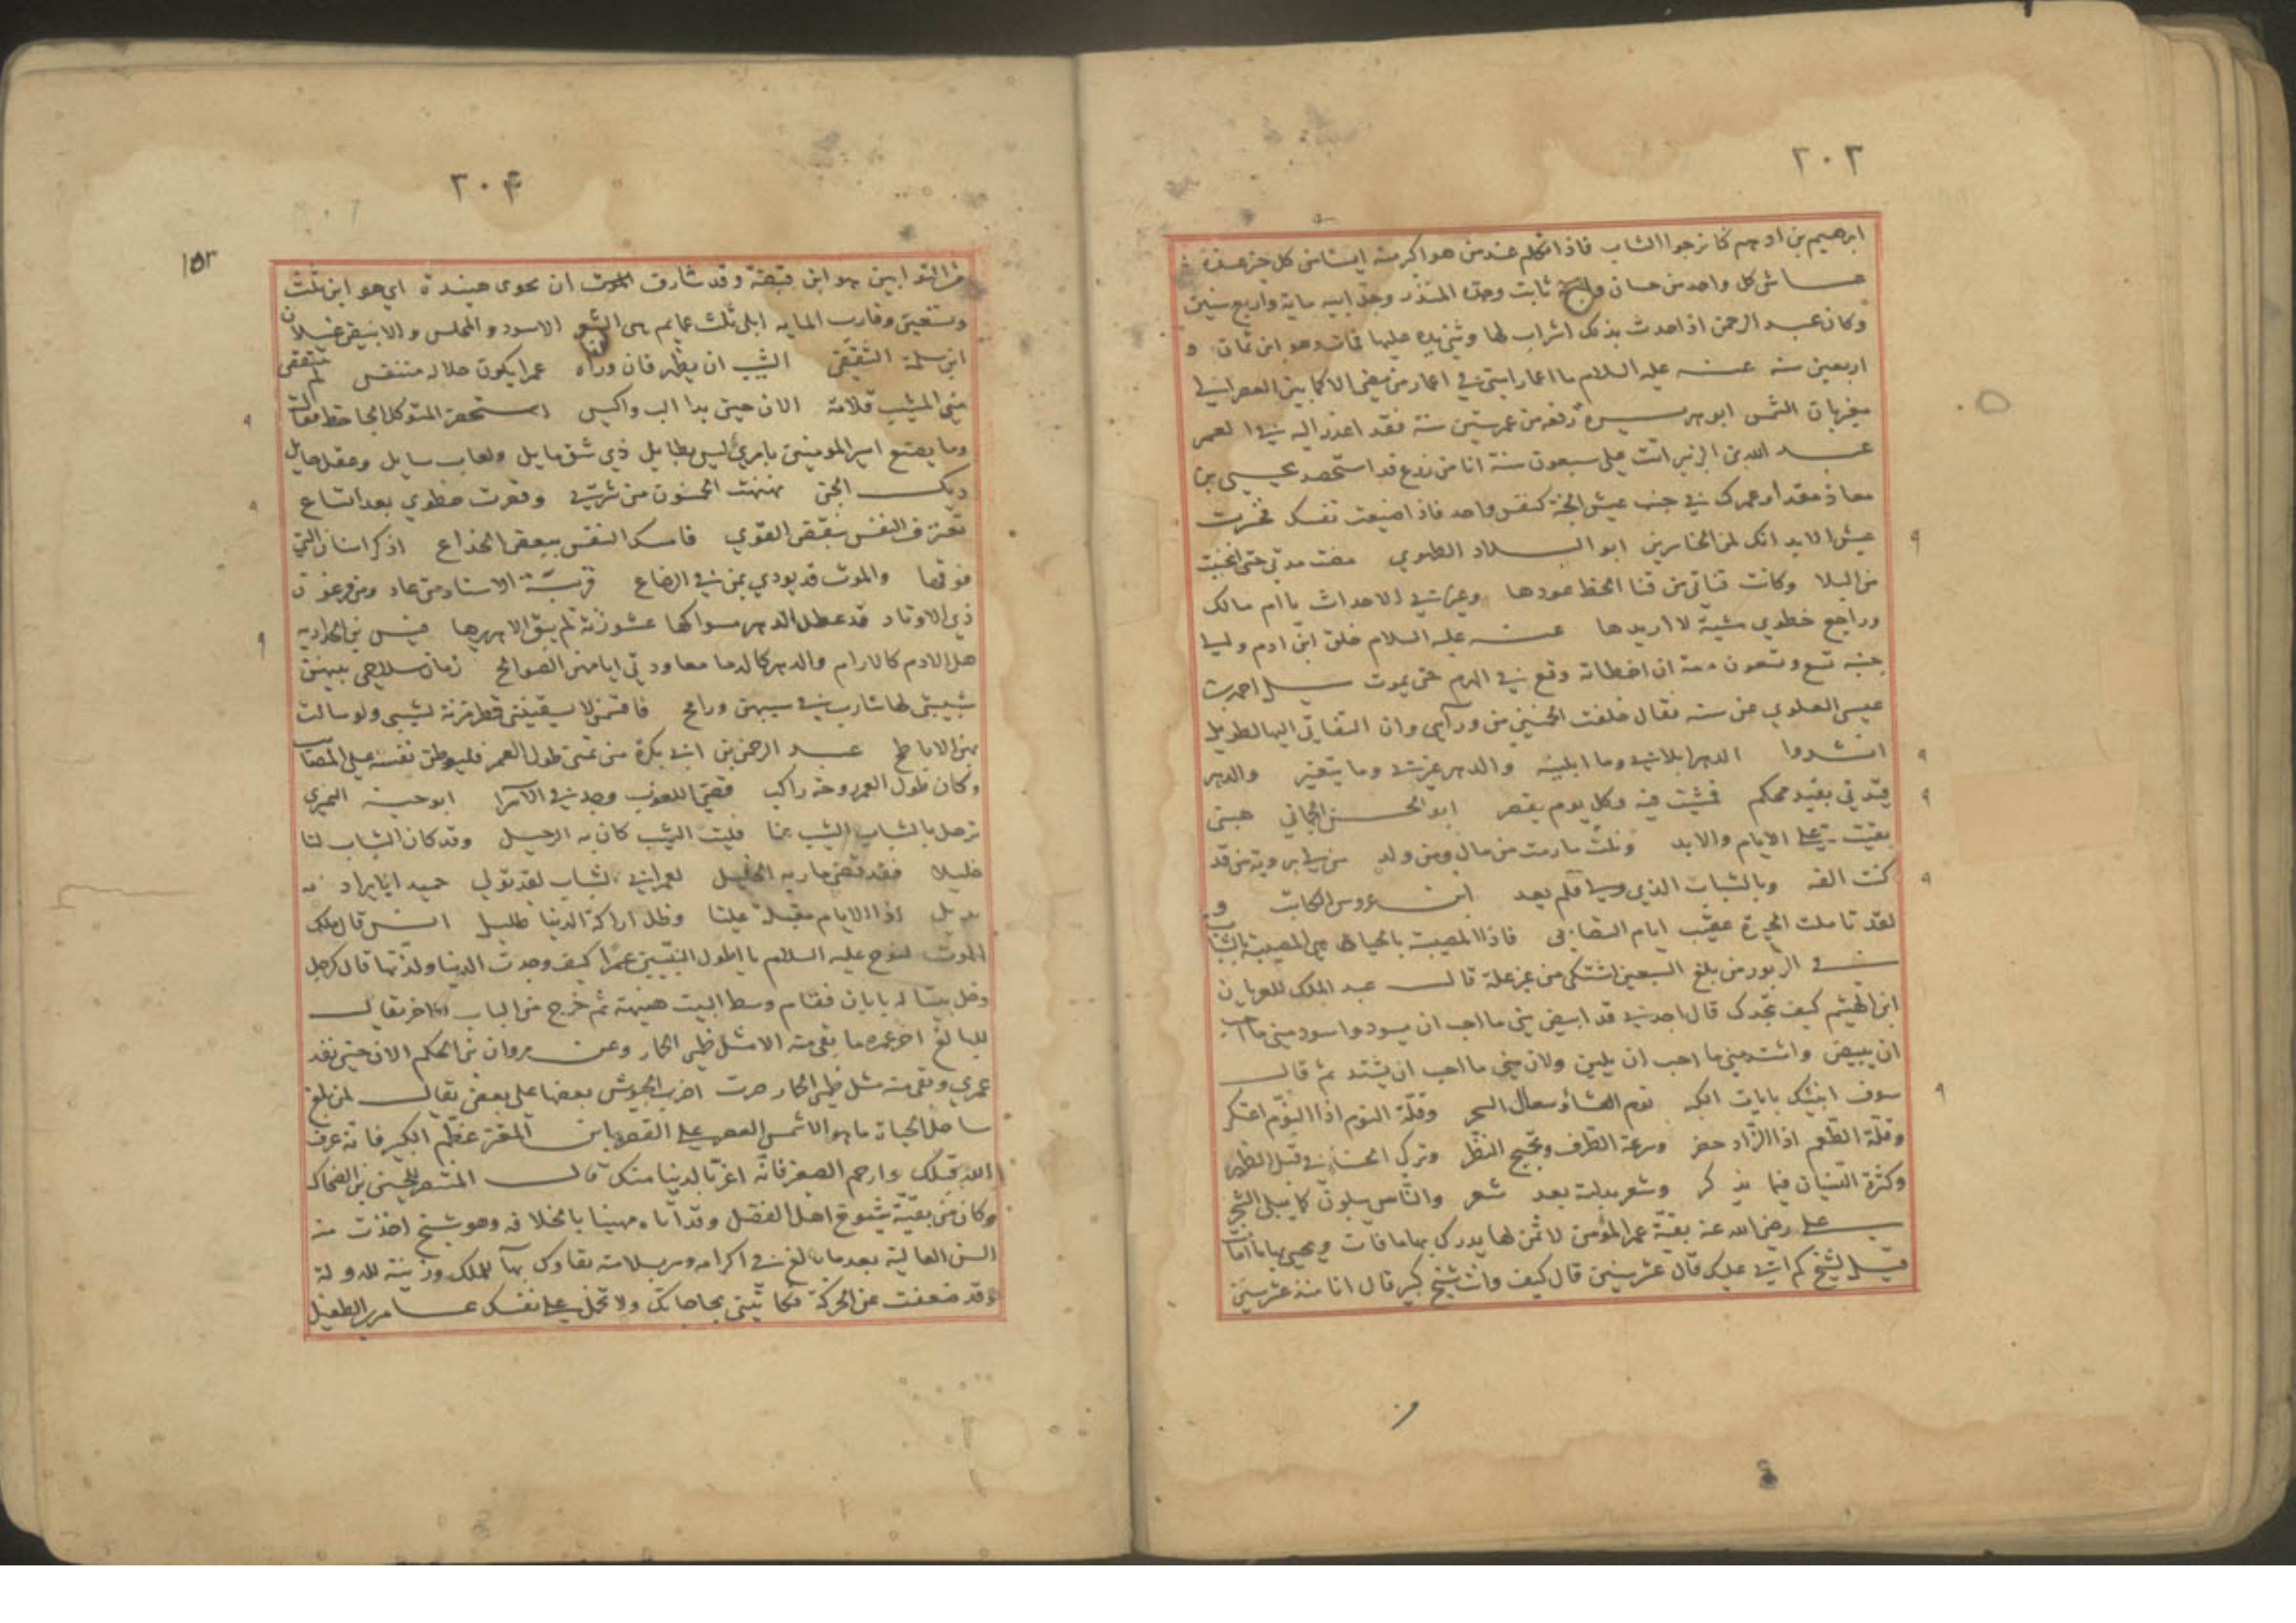 ٢٠٣
ابرهيم بن ادهم كنا نرجوا الشاب فاذا تكلم عند من هو اكبر منه ايسنا من كل خير عنده
عاش كل واحد من حسان و ثابت وجده المنذر وجد ابيه ماية واربع سنين
وكان عبد الرحمن اذا حدث بذلك اشراب لها وثنى يده عليها فمات وهو ابن ثمان و
اربعين سنه عنه عليه السلام ما اعمار امتي في اعمار من مضى الا كما بين العصر الى
مغربان الشمس ابو هريرة رفعه من عمر ستين سنة فقد اعذر اليه في العمر
عبد الله بن الزبير اتت على سبعون سنة انا من زرع قد استحصد يحيى بن
معاذ مقدار عمرك في جنب عيش الجنة كنفس واحد فاذا ضيعت نفسك فخسرت
عيش الابد انك لمن الخاسرين ابو البلاد الطهوي مضت مدتي حتى انحنيت
من البلا وكانت قناتي من قنا الخط عودها وغيرني الاحداث يا ام مالك
وراجع خطوي مشية لا اريدها عنه عليه السلام خلق ابن ادم والى
جنبه تسع وتسعون منية ان اخطاته وقع في الهرم حتى يموت سيل احمد بن
عيسى العلوي عن سنه فقال خلفت الخمسين من ورآيى وان التفاتي اليها لطويل
انشدوا الدهر ابلاني وما ابليته والدهر غيرني وما يتغير والدهر
قيدني بقيد محكم فمشيت فيه وكل يوم يقصر ابو الحسن الحماني هبني
بقيت على الايام والابد ونلت ما رمت من مال ومن ولد من لي برؤية من قد
كنت الفه وبالشباب الذي ولى فلم يعد ابن عروس الكاتب و
لقد تاملت الحيوة عقيب ايام التصابي فاذا المصيبة بالحياة هي المصيبة بالشباب
في الزبور من بلغ السبعين اشتكى من غير علة قال عبد الملك للعريان
ابن الهيثم كيف تجدك قال اجدني قد ابيض مني ما احب ان يسود واسود مني ما احب
ان يبيض واشتد مني ما احب ان يلين ولان مني ما احب ان يشتد ثم قال
سوف انبئك بايات الكبر نوم العشاء وسعال السحر وقلة النوم اذا النوم اعتكر
وقلة الطعم اذا الزاد حضر وسرعة الطرف وتحجيج النظر وتركي الحسناء في قبل الطهر
وكثرة النسيان فيما يذكر وشعر بدلته بعد شعر والناس يبلون كما يبلى الشجر
على رضي الله عنه بقية عمر المؤمن لا ثمن لها يدرك بها ما فات ويحيى بها ما امات
قيل لشيخ كم اتى عليك قال عشر سنين قال كيف وانت شيخ كبير قال انا منذ عشر سنين
٢٠۴
١٥٣
من التوابين هو ابن قبضة وقد شارف الموت ان يحوى هنيدة اي هو ابن ثلث
وتسعين وقارب المايه ابلى ثلث عمايم هى الشعر الاسود والمخلس والابيض غيلان
ابن سلمة الثقفي الشيب ان يظهر فان وراه عمرا يكون خلاله متنفس لم ينتقص
مني المشيب قلامة الان حين بدا الب واكيس استحضر المتوكل الجاحظ فقال
وما يصنع امير المومنين بامري ليس بطايل ذي شق مايل ولعاب سايل وعقل حايل
ديك الجن نهنهت الخمسون من شرتي وقصرت خطوي بعد اتساع
تعترف النفس بنقض القوي فامسك النفس ببعض الخداع اذكر اسنان التي
فوقها والموت قد يودي بمن في الرضاع قريبة الاسناد من عاد ومن فرعون
ذي الاوتاد قد عطل الدهر مسواكها عشوزنة لم يبق الا هريرها قيس بن الحدادية
هل الادم كالارام والدهر كالدما معاودتي ايامهن الصوالح زمان سلاحي بينهن
شبيبتي لها شارب في سيبهن ورامح فاقتمن لا يسقينني قط مزنة لشيبى ولو سالت
بهن الاباطح عبد الرحمن بن ابي بكرة من تمنى طول العمر فليوطن نفسه على المصايب
وكان طول العمر روحة راكب قضى اللغوب وجد في الآسرا ابو حية النميري
ترحل بالشباب الشيب عنا فليت الشيب كان به الرحيل وقد كان الشباب لنا
خليلا فقد قضى ماربه الخليل لعمر ابي الشباب لقد تولي حميدا ما يراد به
بديل اذ الايام مقبلة علينا وظل اراكة الدنيا ظليل انس قال ملك
الموت لنوح عليه السلام يا اطول النبيين عمرا كيف وجدت الدنيا ولذتها قال كرجل
دخل بيتا له بابان فقام وسط البيت هنيهة ثم خرج من الباب الاخر يقال
للبالغ اخر عمره ما بقي منه الا مثل ظمى الحمار وعن مروان بن الحكم الان حين نفد
عمري وبقي منه مثل ظمى الحمار صرت اضرب الجيوش بعضها على بعض يقال لمن بلغ
ساحل الحياة ما هو الا شمس العصر على القصر ابن المعتز عظم الكبير فانه عرف
الله قبلك وارحم الصغير فانه اغر بالدنيا منك قال المنتصر للحسين بن الضحاك
وكان من بقية شيوخ اهل الفضل وقد اتاه مهنيا بالخلافه وهو شيخ اخذت منه
السن العالية بعد ما بالغ في اكرامه وبر سلامته بقاوك بهآ للملك وزينة للدولة
وقد ضعفت عن الحركة فكاتبني بحاجاتك ولا تحمل على نفسك عامر بن الطفيل